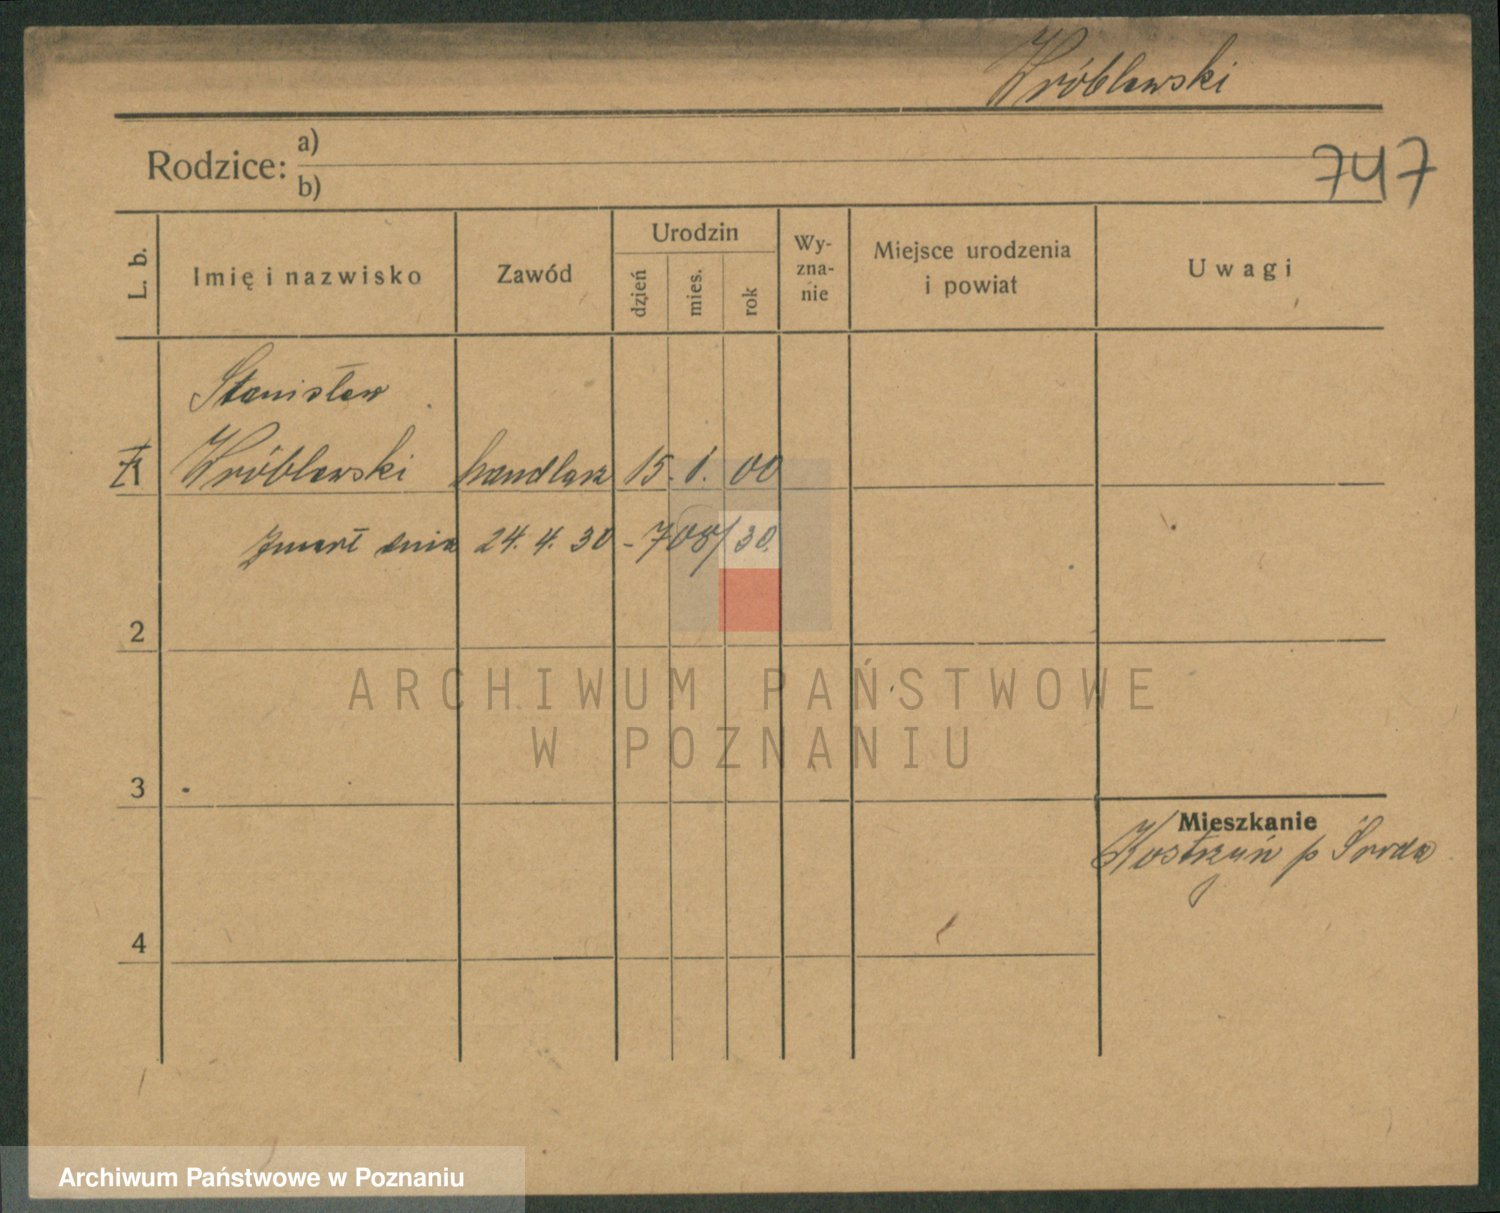 Wróblewski
Rodzice: a)
b)
747
L. b.
Imię i nazwisko
Zawód
Urodzin
dzień
mies.
rok
Wy-
zna-
nie
Miejsce urodzenia
i powiat
Uwagi
Stanisław
1 Wróblewski handlarz 15. 1. 00
zmarł dnia 24. 4. 30 - 708/30.
2
ARCHIWUM PAŃSTWOWE
W POZNANIU
3
Mieszkanie
Kostrzyń p Środa
4
Archiwum Państwowe w Poznaniu